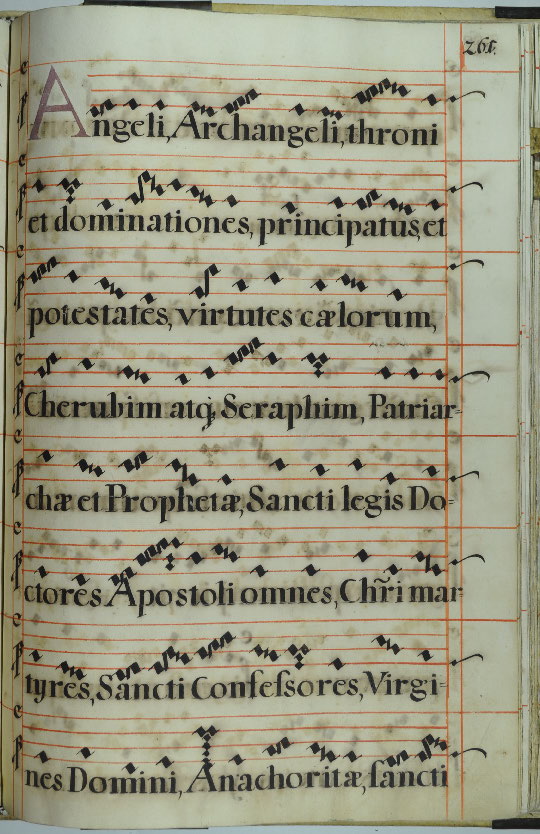 261.
Angeli, Archangeli, throni
et dominationes, principatus, et
potestates, virtutes cælorum,
Cherubim atq; Seraphim, Patriar-
chæ et Prophetæ, Sancti legis Do-
ctores Apostoli omnes, Chr̃i mar-
tyres, Sancti Confeſsores, Virgi-
nes Domini, Anachoritæ, ſancti